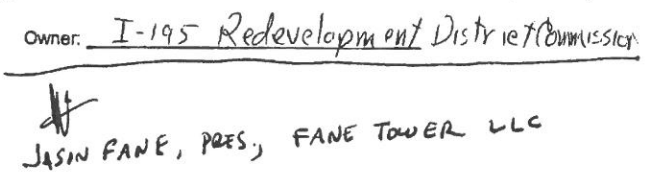 Owner: I-195 Redevelopment District Commission
JASON FANE, PRES., FANE TOWER LLC